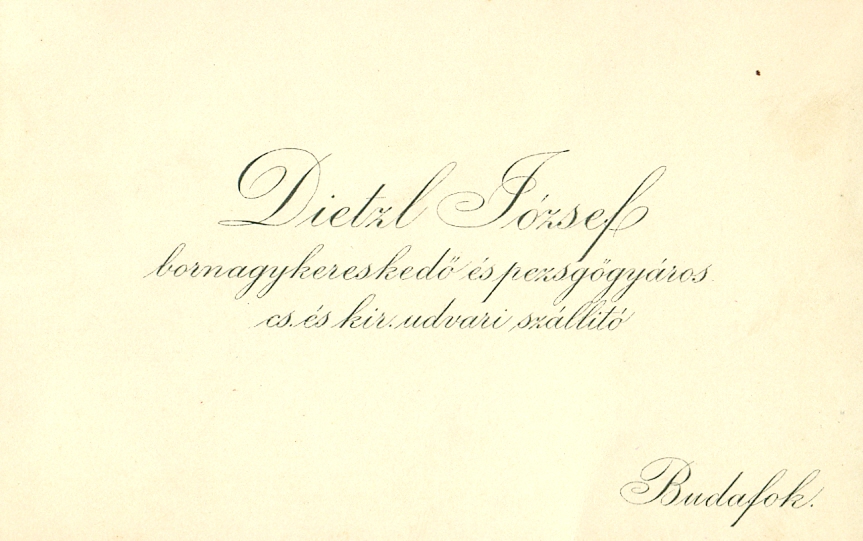 Dietzl József
bornagykereskedő és pezsgőgyáros
cs. és kir. udvari szállitó
Budafok.